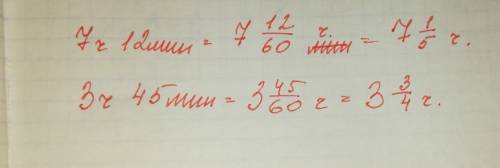 7ч 12мин = 7 12/60 ч. = 7 1/5 ч.
3ч 45мин = 3 45/60 ч = 3 3/4 ч.